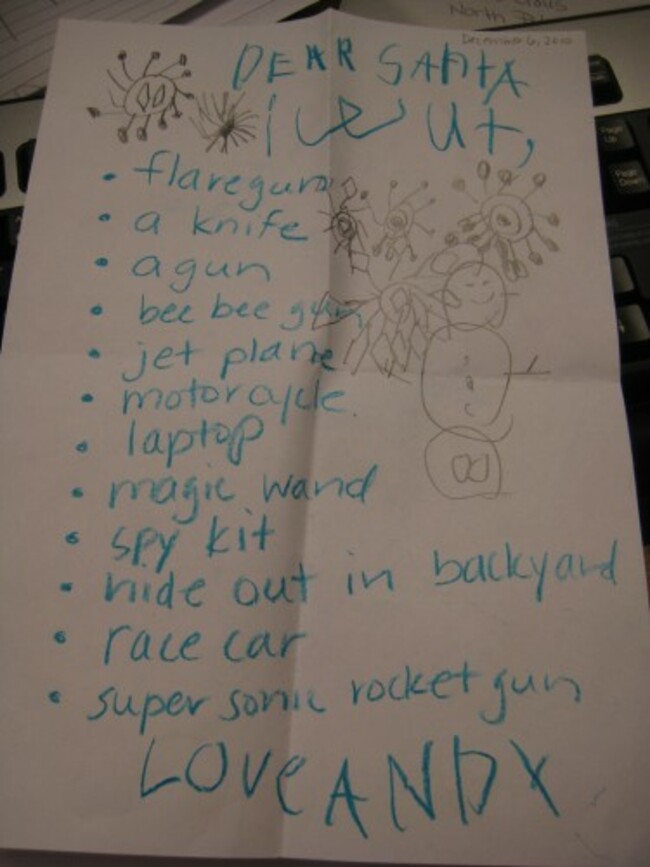 December 6, 20
North
DEAR SANTA
i
Ut,
• flaregun
• a knife
• a gun
• bee bee gun
• jet plane
• motorcycle
• laptop
• magic wand
• spy kit
• hide out in backyard
• race car
• super sonic rocket gun
LOVE ANDY
Page Up
Page Down